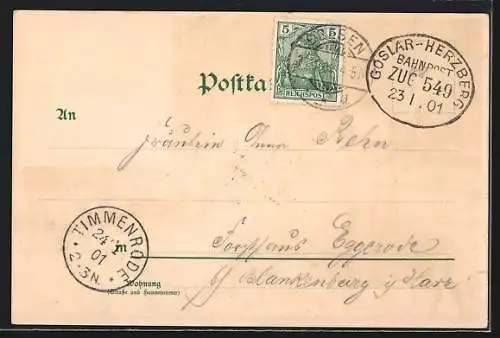 5 5
REICHSPOST
GOSLAR-HERZBERG
BAHNPOST
ZUG 549
23 1. 01
Postka
An
Fräulein Anna Rehn
TIMMENRODE
24 1
01
2-3N.
in Forsthaus Eggerode
Wohnung
(Straße und Hausnummer)
b/ Blankenburg i/ Harz